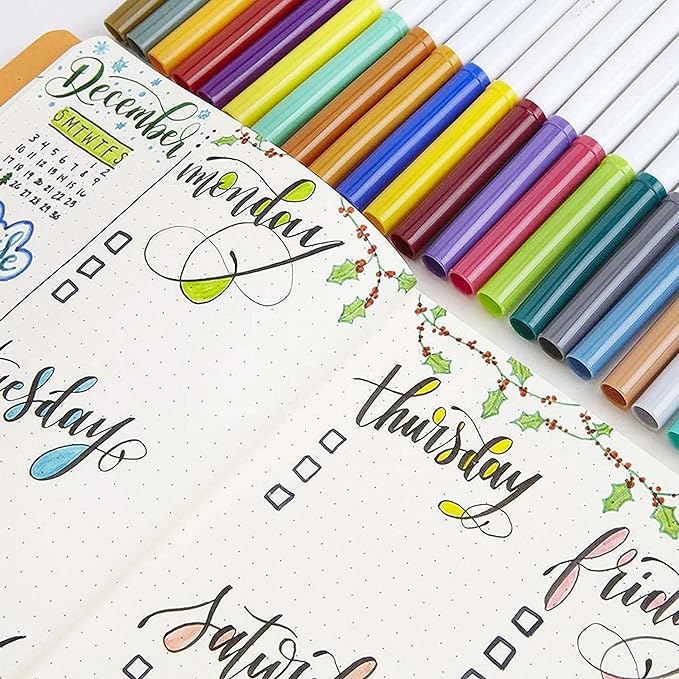 December
S M T W T F S
1 2
3 4 5 6 7 8 9
10 11 12 13 14 15 16
17 18 19 20 21 22 23
26 27 28 29 30
monday
tuesday
thursday
friday